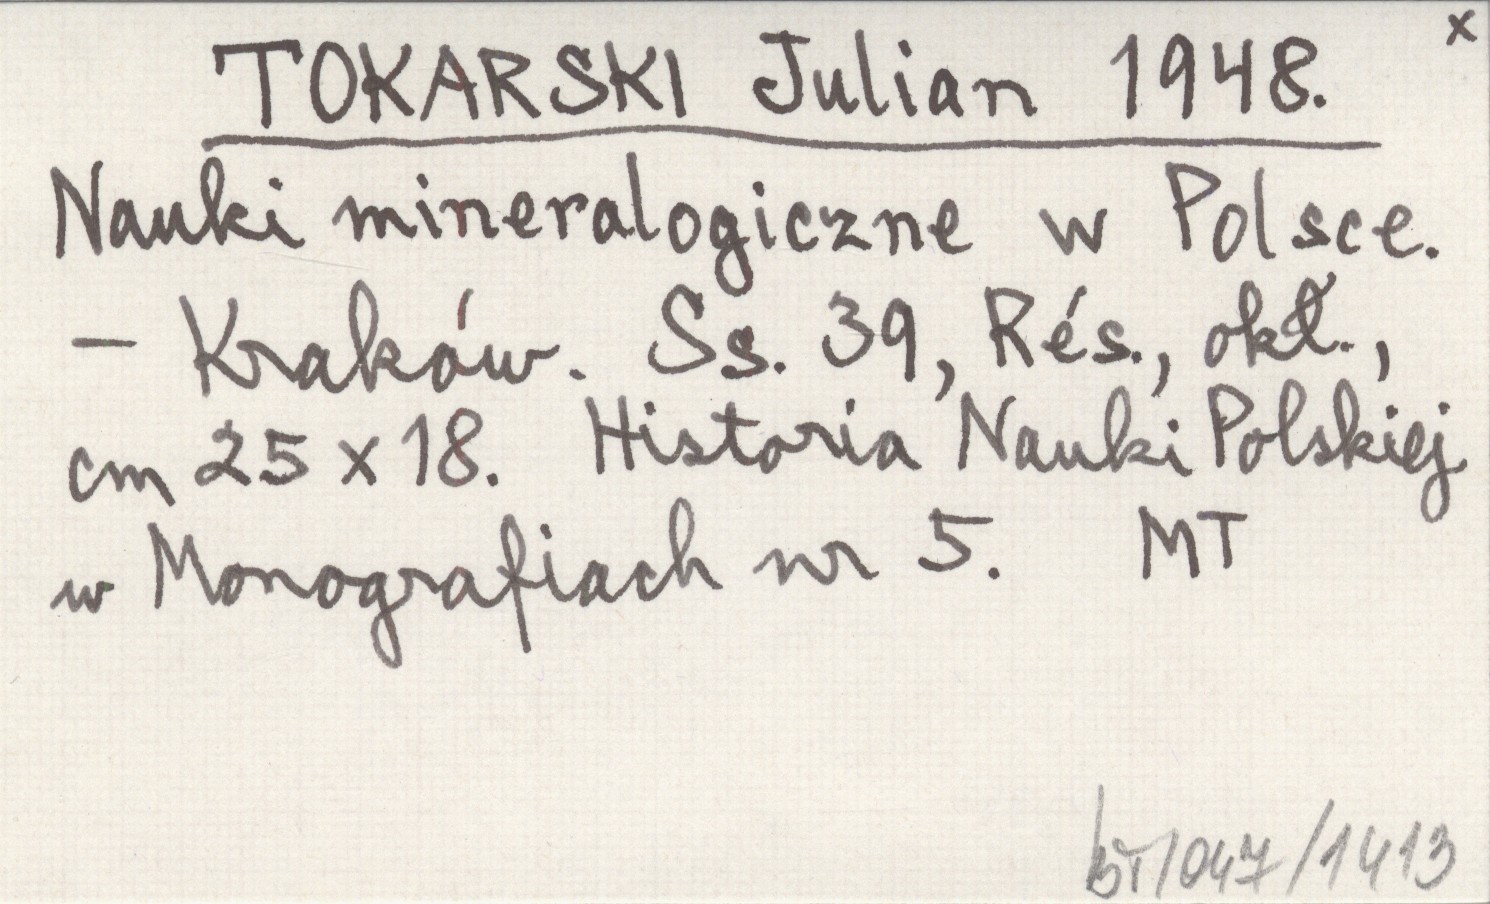 x
TOKARSKI Julian 1948.
Nauki mineralogiczne w Polsce.
— Kraków. Ss. 39, Rés., okł.,
cm 25 x 18. Historia Nauki Polskiej
w Monografiach nr 5. MT
/047/1413